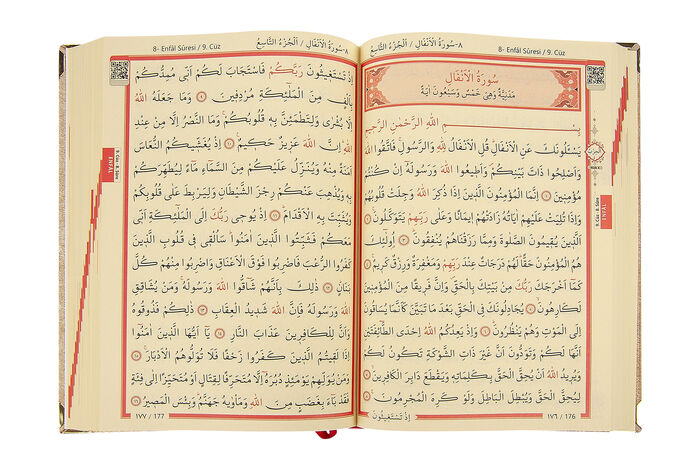 8- Enfâl Sûresi / 9. Cüz ٨-سُورَةُ الْاَنْفَالِ / اَلْجُزْءُ التَّاسِعُ
سُورَةُ الْاَنْفَالِ
مَدَنِيَّةٌ وَهِىَ خَمْسٌ وَسَبْعُونَ اٰيَةً
بِسْمِ اللّٰهِ الرَّحْمٰنِ الرَّحِيمِ
يَسْـَٔلُونَكَ عَنِ الْاَنْفَالِ قُلِ الْاَنْفَالُ لِلّٰهِ وَالرَّسُولِ فَاتَّقُوا اللّٰهَ
وَاَصْلِحُوا ذَاتَ بَيْنِكُمْ وَاَطِيعُوا اللّٰهَ وَرَسُولَهُٓ اِنْ كُنْتُمْ
مُؤْمِنِينَ ﴿١﴾ اِنَّمَا الْمُؤْمِنُونَ الَّذِينَ اِذَا ذُكِرَ اللّٰهُ وَجِلَتْ قُلُوبُهُمْ
وَاِذَا تُلِيَتْ عَلَيْهِمْ اٰيَاتُهُ زَادَتْهُمْ اِيمَانًا وَعَلٰى رَبِّهِمْ يَتَوَكَّلُونَ ﴿٢﴾
اَلَّذِينَ يُقِيمُونَ الصَّلٰوةَ وَمِمَّا رَزَقْنَاهُمْ يُنْفِقُونَ ﴿٣﴾ اُو۬لٰٓئِكَ
هُمُ الْمُؤْمِنُونَ حَقًّا لَهُمْ دَرَجَاتٌ عِنْدَ رَبِّهِمْ وَمَغْفِرَةٌ وَرِزْقٌ كَرِيمٌ ﴿٤﴾
كَمَٓا اَخْرَجَكَ رَبُّكَ مِنْ بَيْتِكَ بِالْحَقِّ وَاِنَّ فَرِيقًا مِنَ الْمُؤْمِنِينَ
لَكَارِهُونَ ﴿٥﴾ يُجَادِلُونَكَ فِى الْحَقِّ بَعْدَ مَا تَبَيَّنَ كَاَنَّمَا يُسَاقُونَ
اِلَى الْمَوْتِ وَهُمْ يَنْظُرُونَ ﴿٦﴾ وَاِذْ يَعِدُكُمُ اللّٰهُ اِحْدَى الطَّٓائِفَتَيْنِ
اَنَّهَا لَكُمْ وَتَوَدُّونَ اَنَّ غَيْرَ ذَاتِ الشَّوْكَةِ تَكُونُ لَكُمْ
وَيُرِيدُ اللّٰهُ اَنْ يُحِقَّ الْحَقَّ بِكَلِمَاتِهِ وَيَقْطَعَ دَابِرَ الْكَافِرِينَ ﴿٧﴾
لِيُحِقَّ الْحَقَّ وَيُبْطِلَ الْبَاطِلَ وَلَوْ كَرِهَ الْمُجْرِمُونَ ﴿٨﴾
اِذْ تَسْتَغِيثُونَ
١٧٦ / 176
9. Cüz - 8. Sûre
ENFÂL
8- Enfâl Sûresi / 9. Cüz ٨-سُورَةُ الْاَنْفَالِ / اَلْجُزْءُ التَّاسِعُ
اِذْ تَسْتَغِيثُونَ رَبَّكُمْ فَاسْتَجَابَ لَكُمْ اَنِّى مُمِدُّكُمْ
بِاَلْفٍ مِنَ الْمَلٰٓئِكَةِ مُرْدِفِينَ ﴿٩﴾ وَمَا جَعَلَهُ اللّٰهُ
اِلَّا بُشْرٰى وَلِتَطْمَئِنَّ بِهِ قُلُوبُكُمْ وَمَا النَّصْرُ اِلَّا مِنْ عِنْدِ
اللّٰهِ اِنَّ اللّٰهَ عَزِيزٌ حَكِيمٌ ﴿١٠﴾ اِذْ يُغَشِّيكُمُ النُّعَاسَ
اَمَنَةً مِنْهُ وَيُنَزِّلُ عَلَيْكُمْ مِنَ السَّمَٓاءِ مَٓاءً لِيُطَهِّرَكُمْ
بِهِ وَيُذْهِبَ عَنْكُمْ رِجْزَ الشَّيْطَانِ وَلِيَرْبِطَ عَلٰى قُلُوبِكُمْ
وَيُثَبِّتَ بِهِ الْاَقْدَامَ ﴿١١﴾ اِذْ يُوحِى رَبُّكَ اِلَى الْمَلٰٓئِكَةِ اَنِّى
مَعَكُمْ فَثَبِّتُوا الَّذِينَ اٰمَنُوا سَاُلْقِى فِى قُلُوبِ الَّذِينَ
كَفَرُوا الرُّعْبَ فَاضْرِبُوا فَوْقَ الْاَعْنَاقِ وَاضْرِبُوا مِنْهُمْ كُلَّ
بَنَانٍ ﴿١٢﴾ ذٰلِكَ بِاَنَّهُمْ شَٓاقُّوا اللّٰهَ وَرَسُولَهُ وَمَنْ يُشَاقِقِ
اللّٰهَ وَرَسُولَهُ فَاِنَّ اللّٰهَ شَدِيدُ الْعِقَابِ ﴿١٣﴾ ذٰلِكُمْ فَذُوقُوهُ
وَاَنَّ لِلْكَافِرِينَ عَذَابَ النَّارِ ﴿١٤﴾ يَٓا اَيُّهَا الَّذِينَ اٰمَنُٓوا
اِذَا لَقِيتُمُ الَّذِينَ كَفَرُوا زَحْفًا فَلَا تُوَلُّوهُمُ الْاَدْبَارَ ﴿١٥﴾
وَمَنْ يُوَلِّهِمْ يَوْمَئِذٍ دُبُرَهُٓ اِلَّا مُتَحَرِّفًا لِقِتَالٍ اَوْ مُتَحَيِّزًا اِلٰى فِئَةٍ
فَقَدْ بَٓاءَ بِغَضَبٍ مِنَ اللّٰهِ وَمَأْوٰيهُ جَهَنَّمُ وَبِئْسَ الْمَصِيرُ ﴿١٦﴾
١٧٧ / 177
9. Cüz - 8. Sûre
ENFÂL